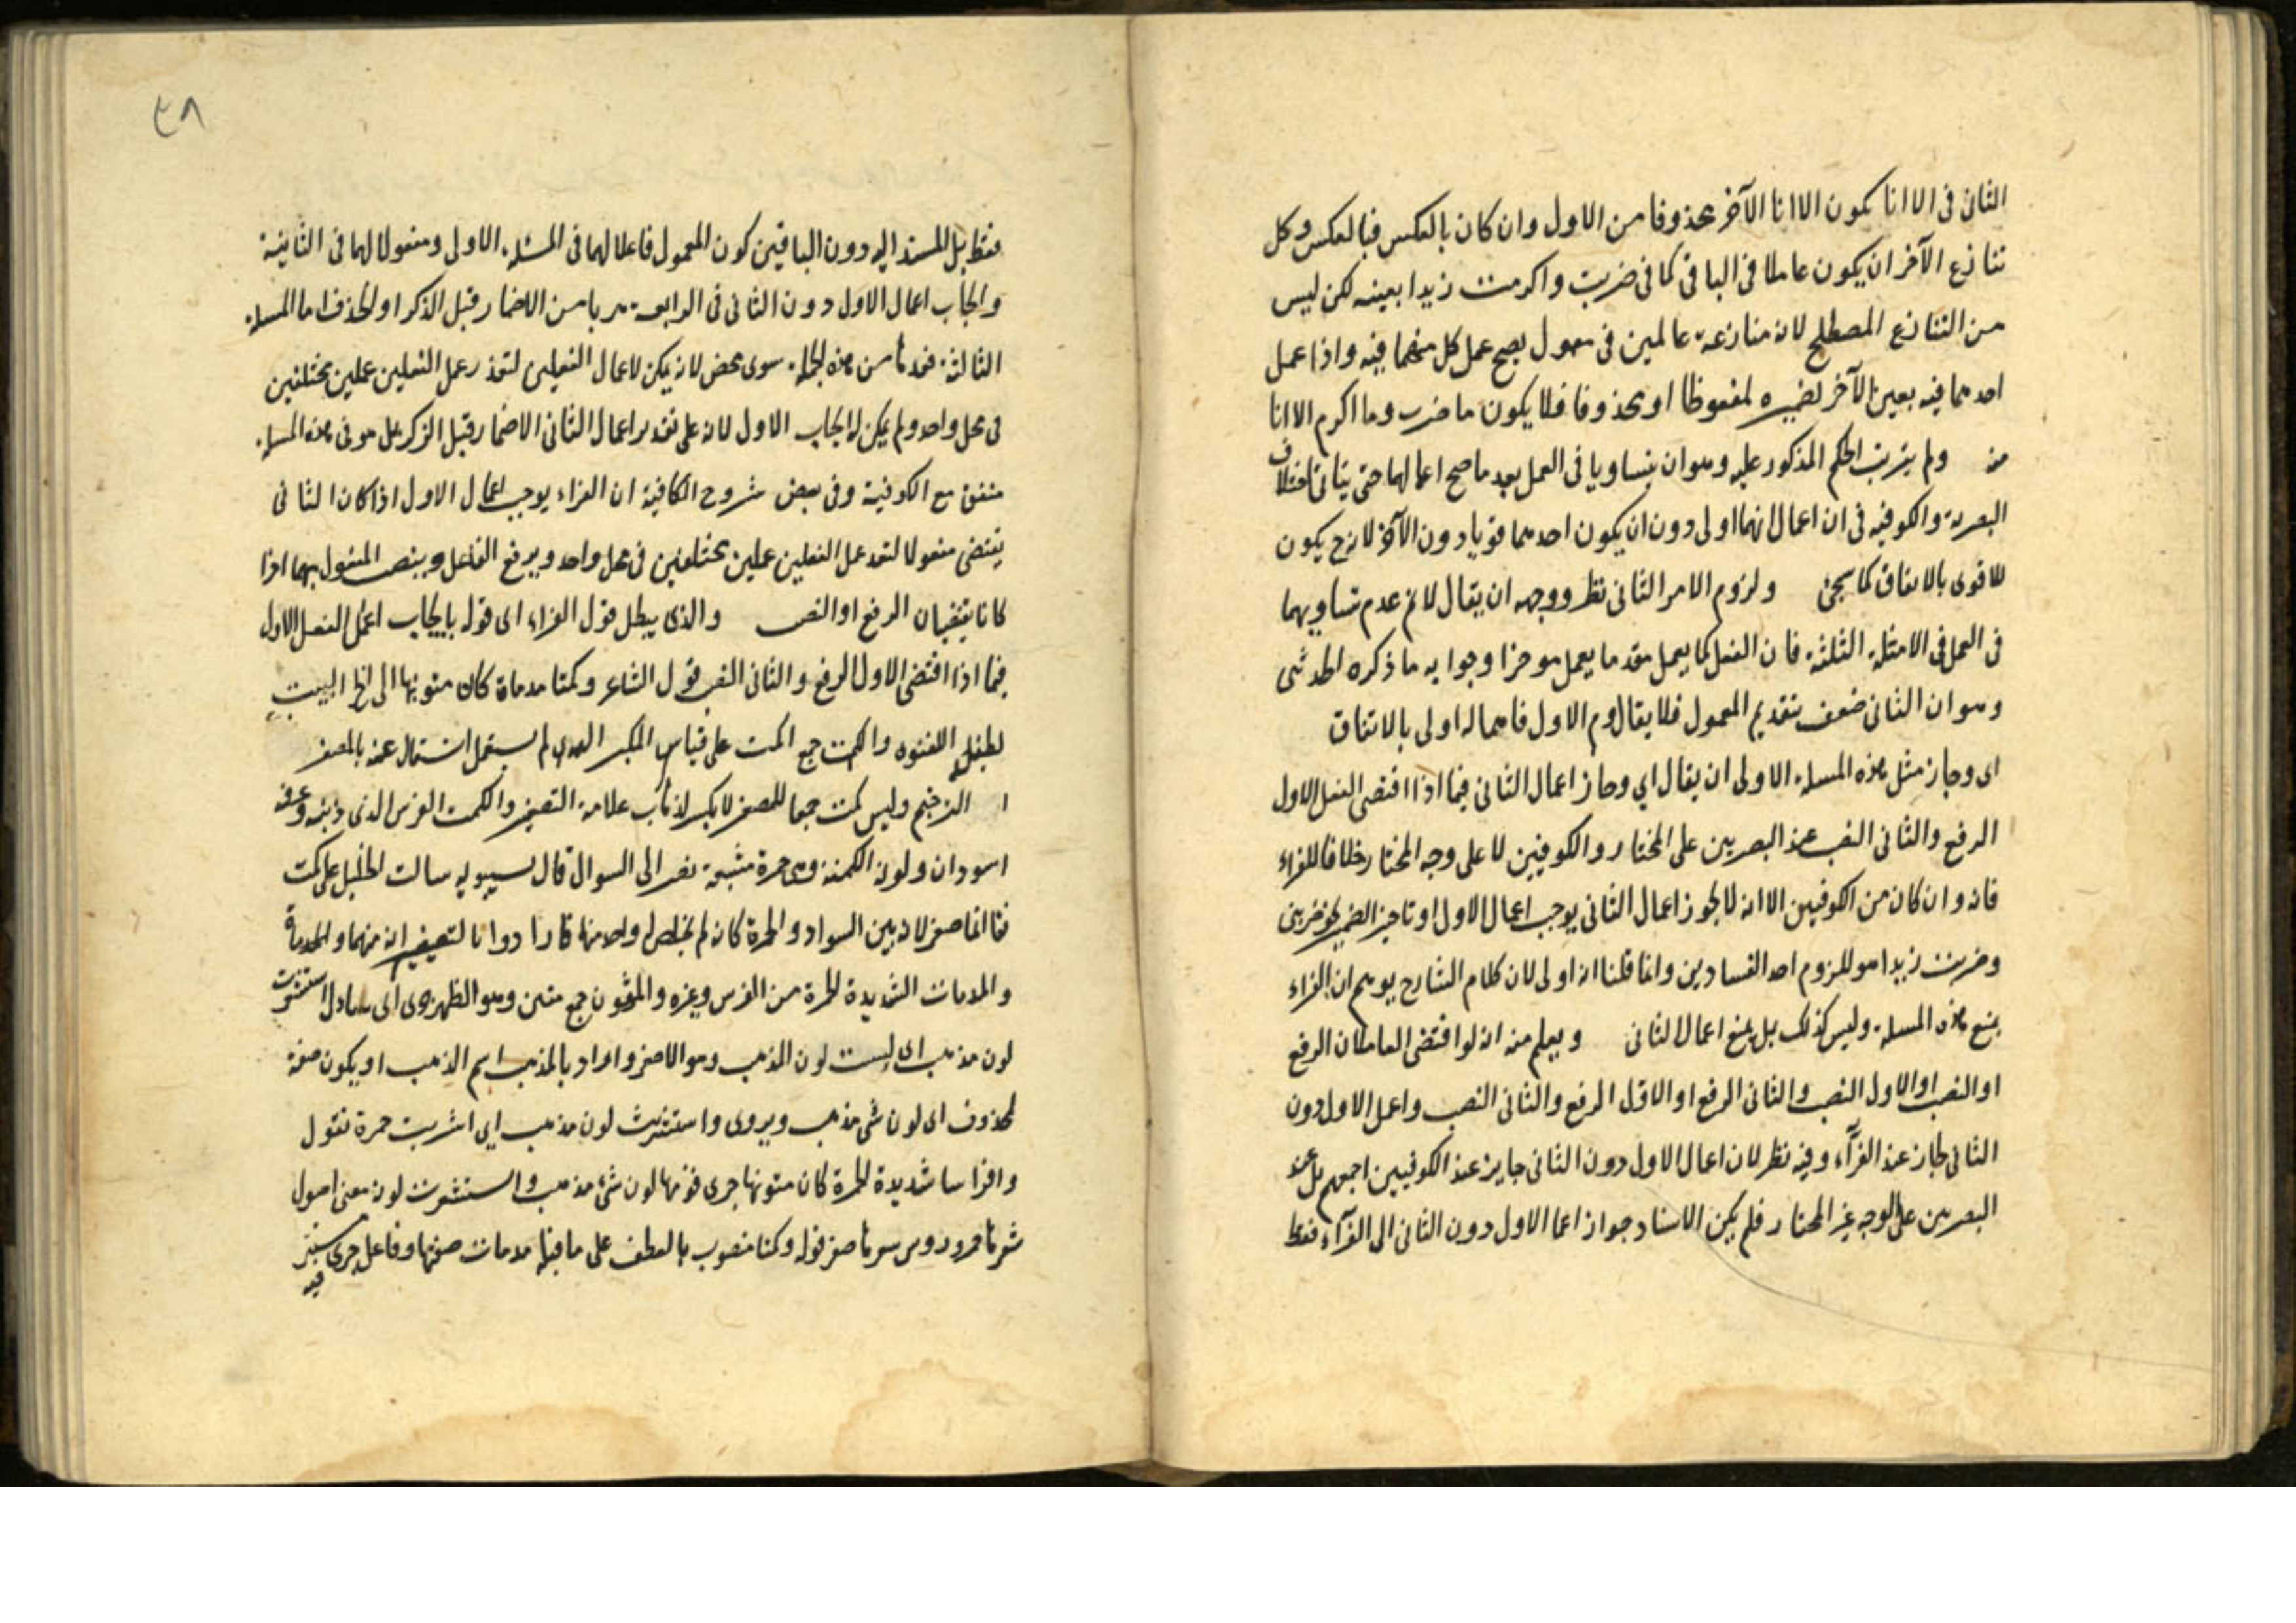 الثانى فى الا انا يكون الا انا الآخر محذوفا من الاول وان كان بالعكس فبالعكس وكل
تنازع الآخر ان يكون عاملا فى الباقى كما فى ضربت واكرمت زيدا بعينه لكن ليس
من التنازع المصطلح لانه منازعة عاملين فى معمول يصح عمل كل منهما فيه واذا عمل
احدهما فيه يعين الآخر لضميره ملفوظا او محذوفا فلا يكون ما ضرب وما اكرم الا انا
منه ولم يترتب الحكم المذكور عليه وهو ان يتساويا فى العمل بعد ما صح اعمالهما حتى يتاتى اختلاف
البصرية والكوفية فى ان اعمال ايهما اولى دون ان يكون احدهما قويا دون الآخر لانه ح يكون
للاقوى بالاتفاق كما سيجئ ولزوم الامر الثانى نظر ووجهه ان يقال لانم عدم تساويهما
فى العمل فى الامثلة الثلثة فان الفعل كما يعمل مقدما يعمل موخرا وجوابه ما ذكره
وهو ان الثانى ضعف بتقديم المعمول فلا يقاوم الاول فاعماله اولى بالاتفاق
اى وجاز مثل هذه المسئلة الاولى ان يقال اي وجاز اعمال الثانى فيما اذا اقتضى الفعل الاول
الرفع والثانى النصب عند البصريين على المختار والكوفيين لا على وجه المختار خلافا للفراء
فانه وان كان من الكوفيين الا انه لا يجوز اعمال الثانى يوجب اعمال الاول او تاخير الضمير نحو ضربنى
وضربت زيدا هو للزوم احد الفسادين وانما قلنا انه اولى لان كلام الشارح يوهم ان الفراء
يمنع هذه المسئلة وليس كذلك بل يمنع اعمال الثانى ويعلم منه انه لو اقتضى العاملان الرفع
او النصب او الاول النصب والثانى الرفع او الاول الرفع والثانى النصب واعمل الاول دون
الثانى لجاز عند الفرآء وفيه نظر لان اعمال الاول دون الثانى جايز عند الكوفيين اجمعهم بل عند
البصريين على الوجه غير المختار فلم يكن الاسناد جواز اعمال الاول دون الثانى الى الفرآء فقط
٣٨
فقط بل المسند اليه دون الباقين كون المعمول فاعلا لهما فى المسئلة الاولى ومفعولا لهما فى الثانية
وايجاب اعمال الاول دون الثانى فى الرابعة هربا من الاضمار قبل الذكر او الحذف اما المسئلة
الثالثة فعدها من هذه الجملة سهو محض لانه يمكن لاعمال الفعلين لتعذر عمل الفعلين عملين مختلفين
فى محل واحد ولم يكن له ايجاب الاول لانه على تقدير اعمال الثانى الاضمار قبل الذكر بل هو فى هذه المسئلة
متفق مع الكوفية وفى بعض شروح الكافية ان الفراء يوجب اعمال الاول اذا كان الثانى
يقتضى مفعولا لتعذر عمل الفعلين عملين مختلفين فى محل واحد ويرفع الفاعل وينصب المفعول بهما اذا
كانا يقتضيان الرفع او النصب والذى يبطل قول الفراء اى قوله بايجاب اعمال الفعل الاول
فيما اذا اقتضى الاول الرفع والثانى النصب قول الشاعر وكمتا مدماة كان متونها الى اخر البيت
لطفيل الغنوى والكمت جمع اكمت على قياس المكبر الذى لم يستعمل استغناء عنه بالمصغر
الترخيم وليس كمت جمعا للمصغر لا يكسر لذهاب علامة التصغير والكميت الفرس الذى ذنبه وعرفه
اسودان ولونه الكمتة وهى حمرة مشبعة تضرب الى السواد قال سيبويه سالت الخليل عن كميت
فقال انما صغر لانه بين السواد والحمرة كانه لم يخلص له واحد منهما فارادوا بالتصغير انه منهما والمدماة
والمدمات الشديدة الحمرة من الفرس وغيره والمتون جمع متن وهو الظهر جرى اى سال استشعرت
لون مذهب اى لبست لون المذهب وهو الاصفر واراد بالمذهب اسم الذهب او يكون صفة
لمحذوف اى لون شئ مذهب ويروى واستشربت لون مذهب اي اشربت حمرة نقول
وافراسا شديدة الحمرة كان متونها جرى فوقها لون شئ مذهب واستشعرت لونه
قوله وكمتا منصوب بالعطف على ما قبله مدمات صفتها وفاعل جرى مستتر
فيه